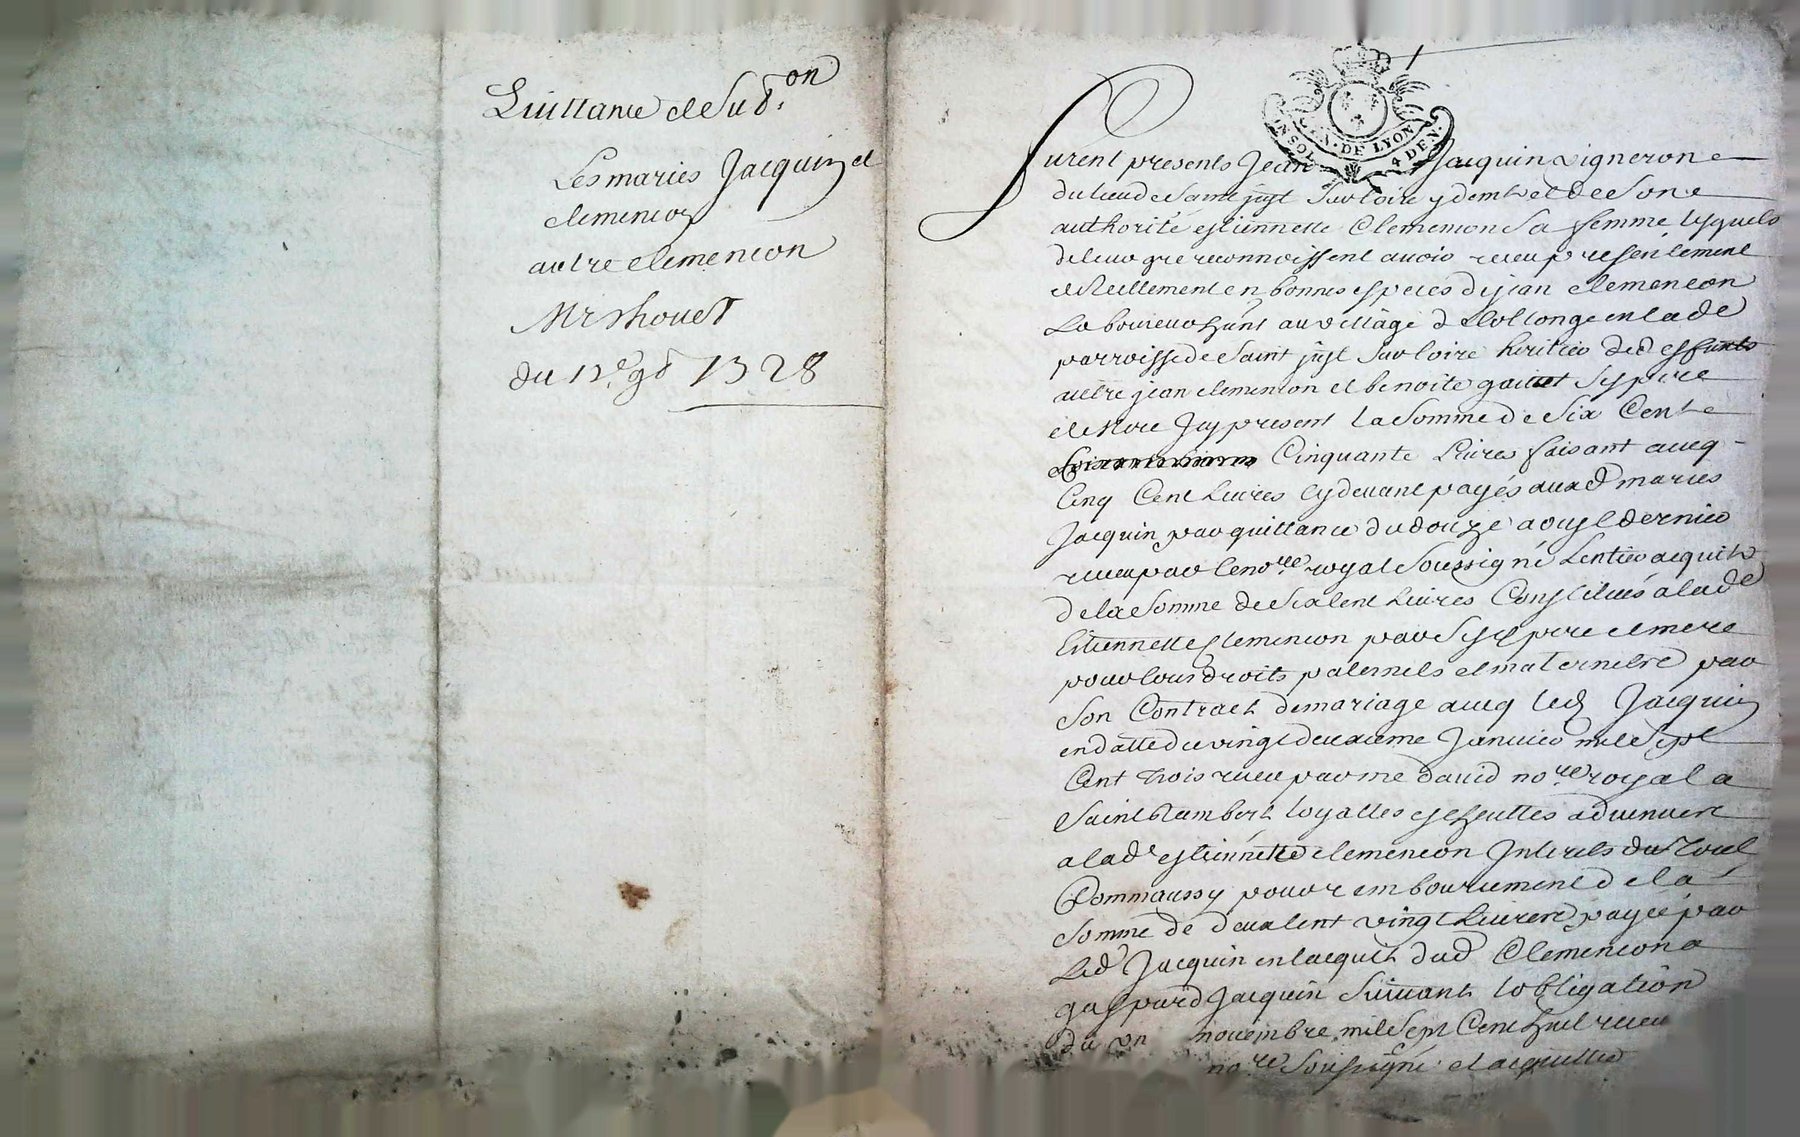 Quittance de Subon
Les maries Jacquin et
clemencon
autre clemencon
Mr Thouet
du 12e 9b 1728
GEN. DE LYON
UN SOL 4 DEN.
furent presents Jean Jacquin vigneron
du lieu de Saint just Sur loire y demt et de Son
authorité estiennette Clemencon Sa femme lesquels
de leur gre reconnoissent avoir receu presentement
et Reellement en bonnes especes de jean clemencon
Laboureur au village de Collonge en lad
parroisse de Saint just Sur loire heritier de d
autre jean clemencon et benoite Ses pere
et Mere Icy present la Somme de Six Cent
Cinquante Livres faisant avecq
Cinq Cent Livres cy devant payés auxd maries
Jacquin par quittance du douze aoust dernier
receu par le nore royal Soussigné Lentier acquit
de la Somme de Six Cent Livres Constitués a lade
Etiennette Clemencon par Sesd pere et mere
pour tous droits paternels et maternels par
Son Contract de mariage avecq led Jacquin
en datte du vingt deuxieme Janvier mil Sept
Cent trois receu par me david nore royal a
Saint Rambert loyalles escheuttes advenues
a lade estiennette clemencon Interets du tout
Comm'aussy pour remboursement de la
Somme de deux Cent vingt Livres payée par
Led Jacquin en lacquit dud Clemencon a
gaspard Jacquin Suivant lobligation
du un novembre mil Sept Cent huit receu
nore Soussigné et acquittée